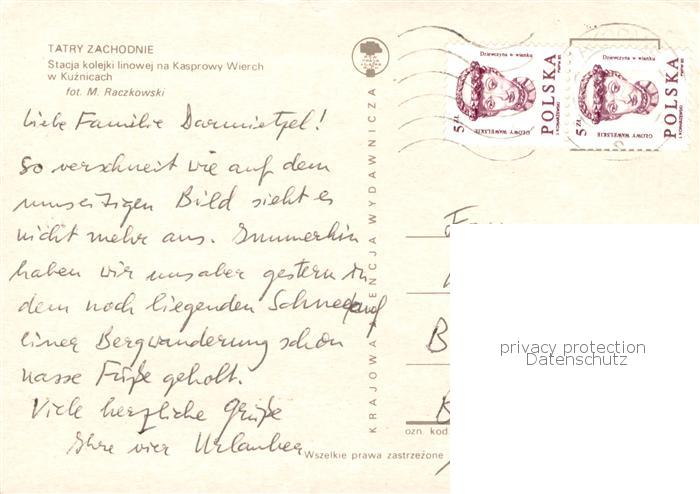 TATRY ZACHODNIE
Stacja kolejki linowej na Kasprowy Wierch
w Kuźnicach
fot. M. Raczkowski
Liebe Familie Darmietzel!
So verschneit wie auf dem
umseitigen Bild sieht es
nicht mehr aus. Immerhin
haben wir uns aber gestern in
dem noch liegenden Schnee auf
einer Bergwanderung schon
nasse Füße geholt.
Viele herzliche Grüße
Ihre vier Urlauber
KRAJOWA AGENCJA WYDAWNICZA
Dziewczyna w wianku
GŁOWY WAWELSKIE
5 ZŁ
POLSKA
Dziewczyna w wianku
GŁOWY WAWELSKIE
5 ZŁ
POLSKA
B
ozn. kod
Wszelkie prawa zastrzeżone
privacy protection
Datenschutz